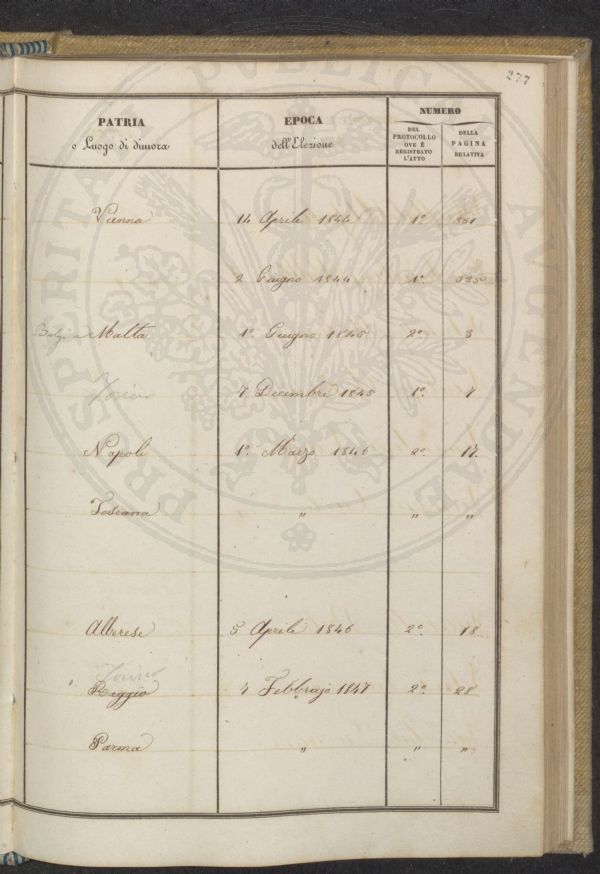 277
PATRIA
o Luogo di dimora
EPOCA
dell'Elezione
NUMERO
DEL
PROTOCOLLO
OVE È
REGISTRATO
L'ATTO
DELLA
PAGINA
RELATIVA
PROSPERITATI PUBLICAE AUGENDAE
Vienna 14 Aprile 1844 1º. 331
2 Giugno 1844 1º. 335
Malta 1º. Giugno 1845 2º. 3
Torino 7 Decembre 1845 1º. 7
Napoli 1º. Marzo 1846 2º. 17.
Toscana " " "
Alberese 5 Aprile 1846 2º. 18
Torino
Reggio 7 Febbrajo 1847 2º. 28
Parma " " "